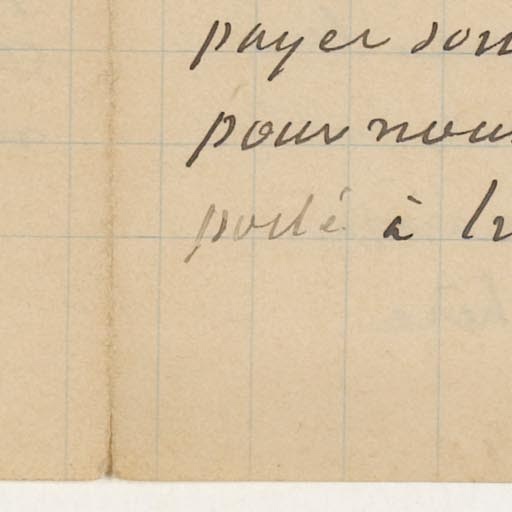 payer son
pour nous
porté à